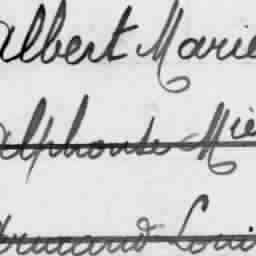 Albert Marie
Alphonse Miè
Armand Loui